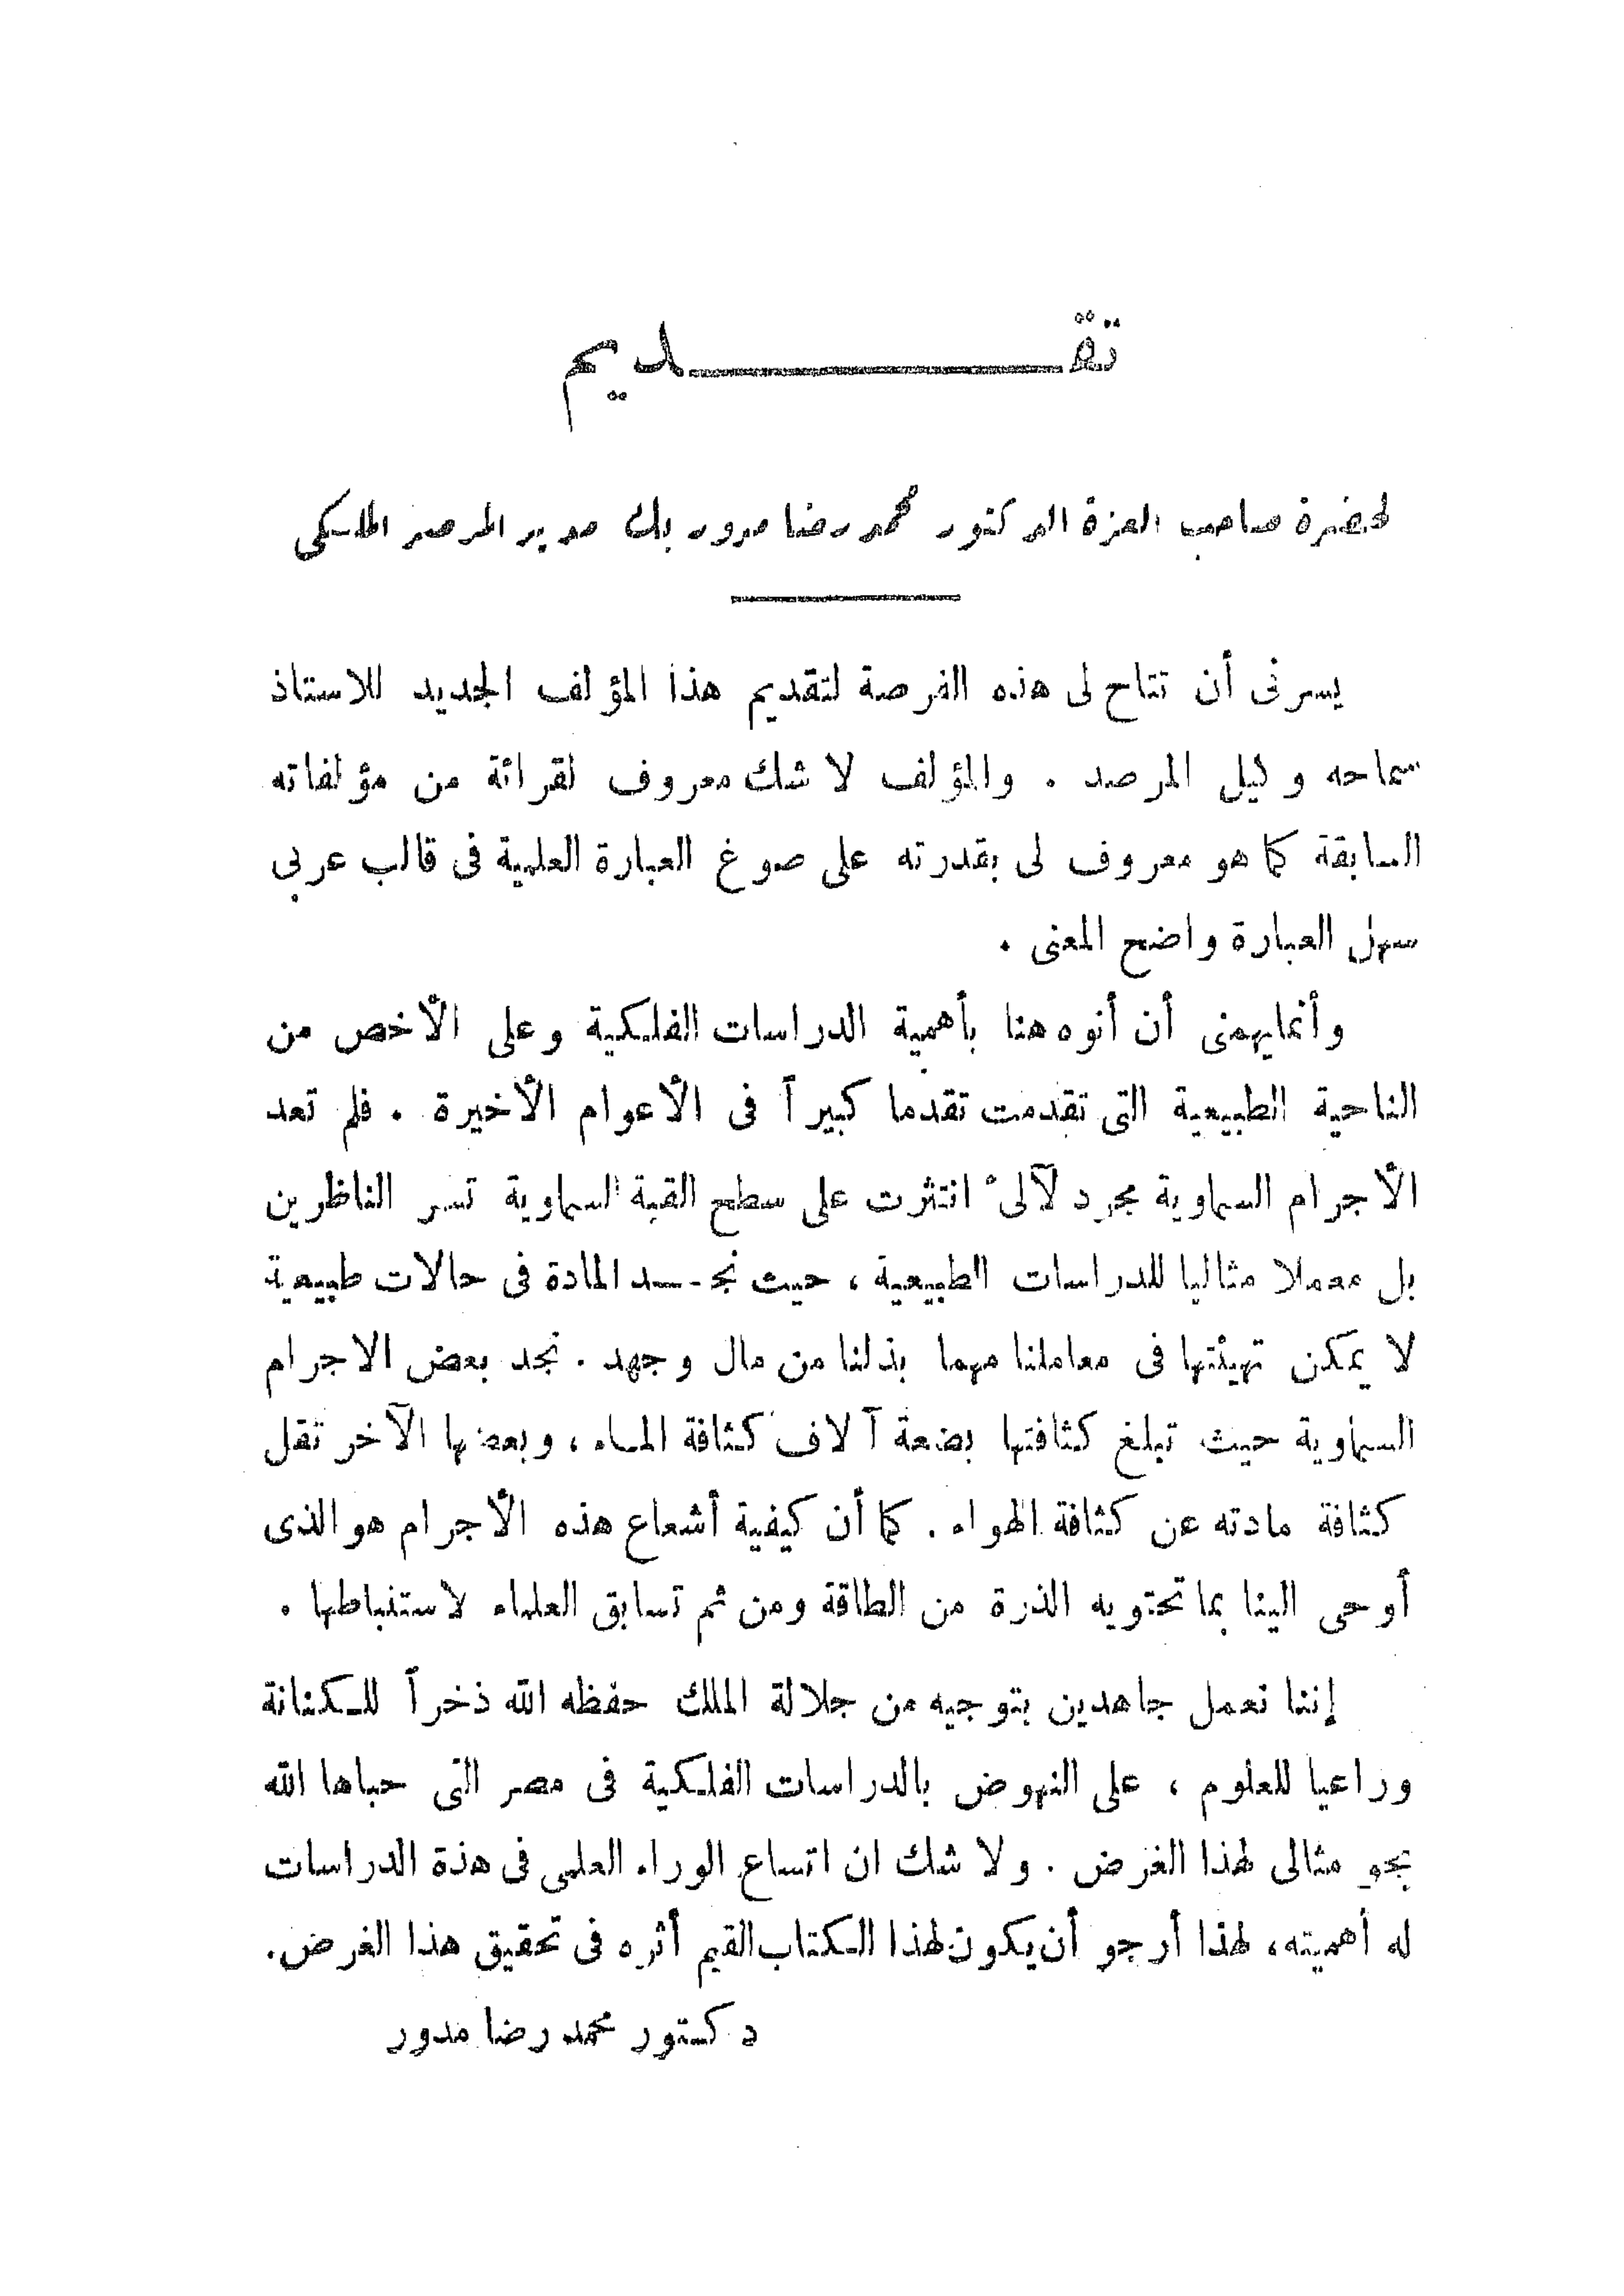 تقـــــــديم
لحضرة صاحب العزة الدكتور محمد رضا مدور بك مدير المرصد الملكى
يسرنى أن تتاح لى هذه الفرصة لتقديم هذا المؤلف الجديد للاستاذ
سماحه وكيل المرصد . والمؤلف لا شك معروف لقرائة من مؤلفاته
السابقة كما هو معروف لى بقدرته على صوغ العبارة العلمية فى قالب عربى
سهل العبارة واضح المعنى .
وأنما يهمنى أن أنوه هنا بأهمية الدراسات الفلكية وعلى الأخص من
الناحية الطبيعية التى تقدمت تقدما كبيراً فى الأعوام الأخيرة . فلم تعد
الأجرام السماوية مجرد لآلىْ انتثرت على سطح القبة السماوية تسر الناظرين
بل معملا مثاليا للدراسات الطبيعية ، حيث نجـــد المادة فى حالات طبيعية
لا يمكن تهيئتها فى معاملنا مهما بذلنا من مال وجهد . نجد بعض الاجرام
السماوية حيث تبلغ كثافتها بضعة آلاف كثافة الماء ، وبعضها الآخر تقل
كثافة مادته عن كثافة الهواء . كما أن كيفية أشعاع هذه الأجرام هو الذى
أوحى الينا بما تحتويه الذرة من الطاقة ومن ثم تسابق العلماء لاستنباطها .
إننا نعمل جاهدين بتوجيه من جلالة الملك حفظه الله ذخراً للكنانة
وراعيا للعلوم ، على النهوض بالدراسات الفلكية فى مصر التى حباها الله
بجو مثالى لهذا الغرض . ولا شك ان اتساع الوراء العلمى فى هذة الدراسات
له أهميته ، لهذا أرجو أن يكون لهذا الكتاب القيم أثره فى تحقيق هذا الغرض.
دكتور محمد رضا مدور